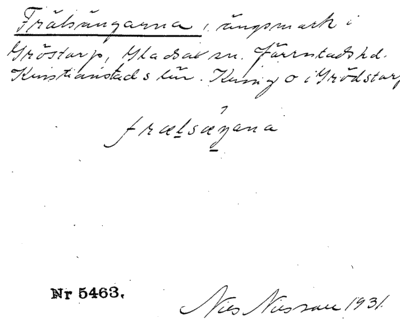 Frälsängarna, ängsmark i
Gröstorp, Gladsax sn. Järrestads hd.
Kristianstads län. Kung o i Grödstorp
frælsæŋana
Nr 5463.
Nils Nilsson 1931.